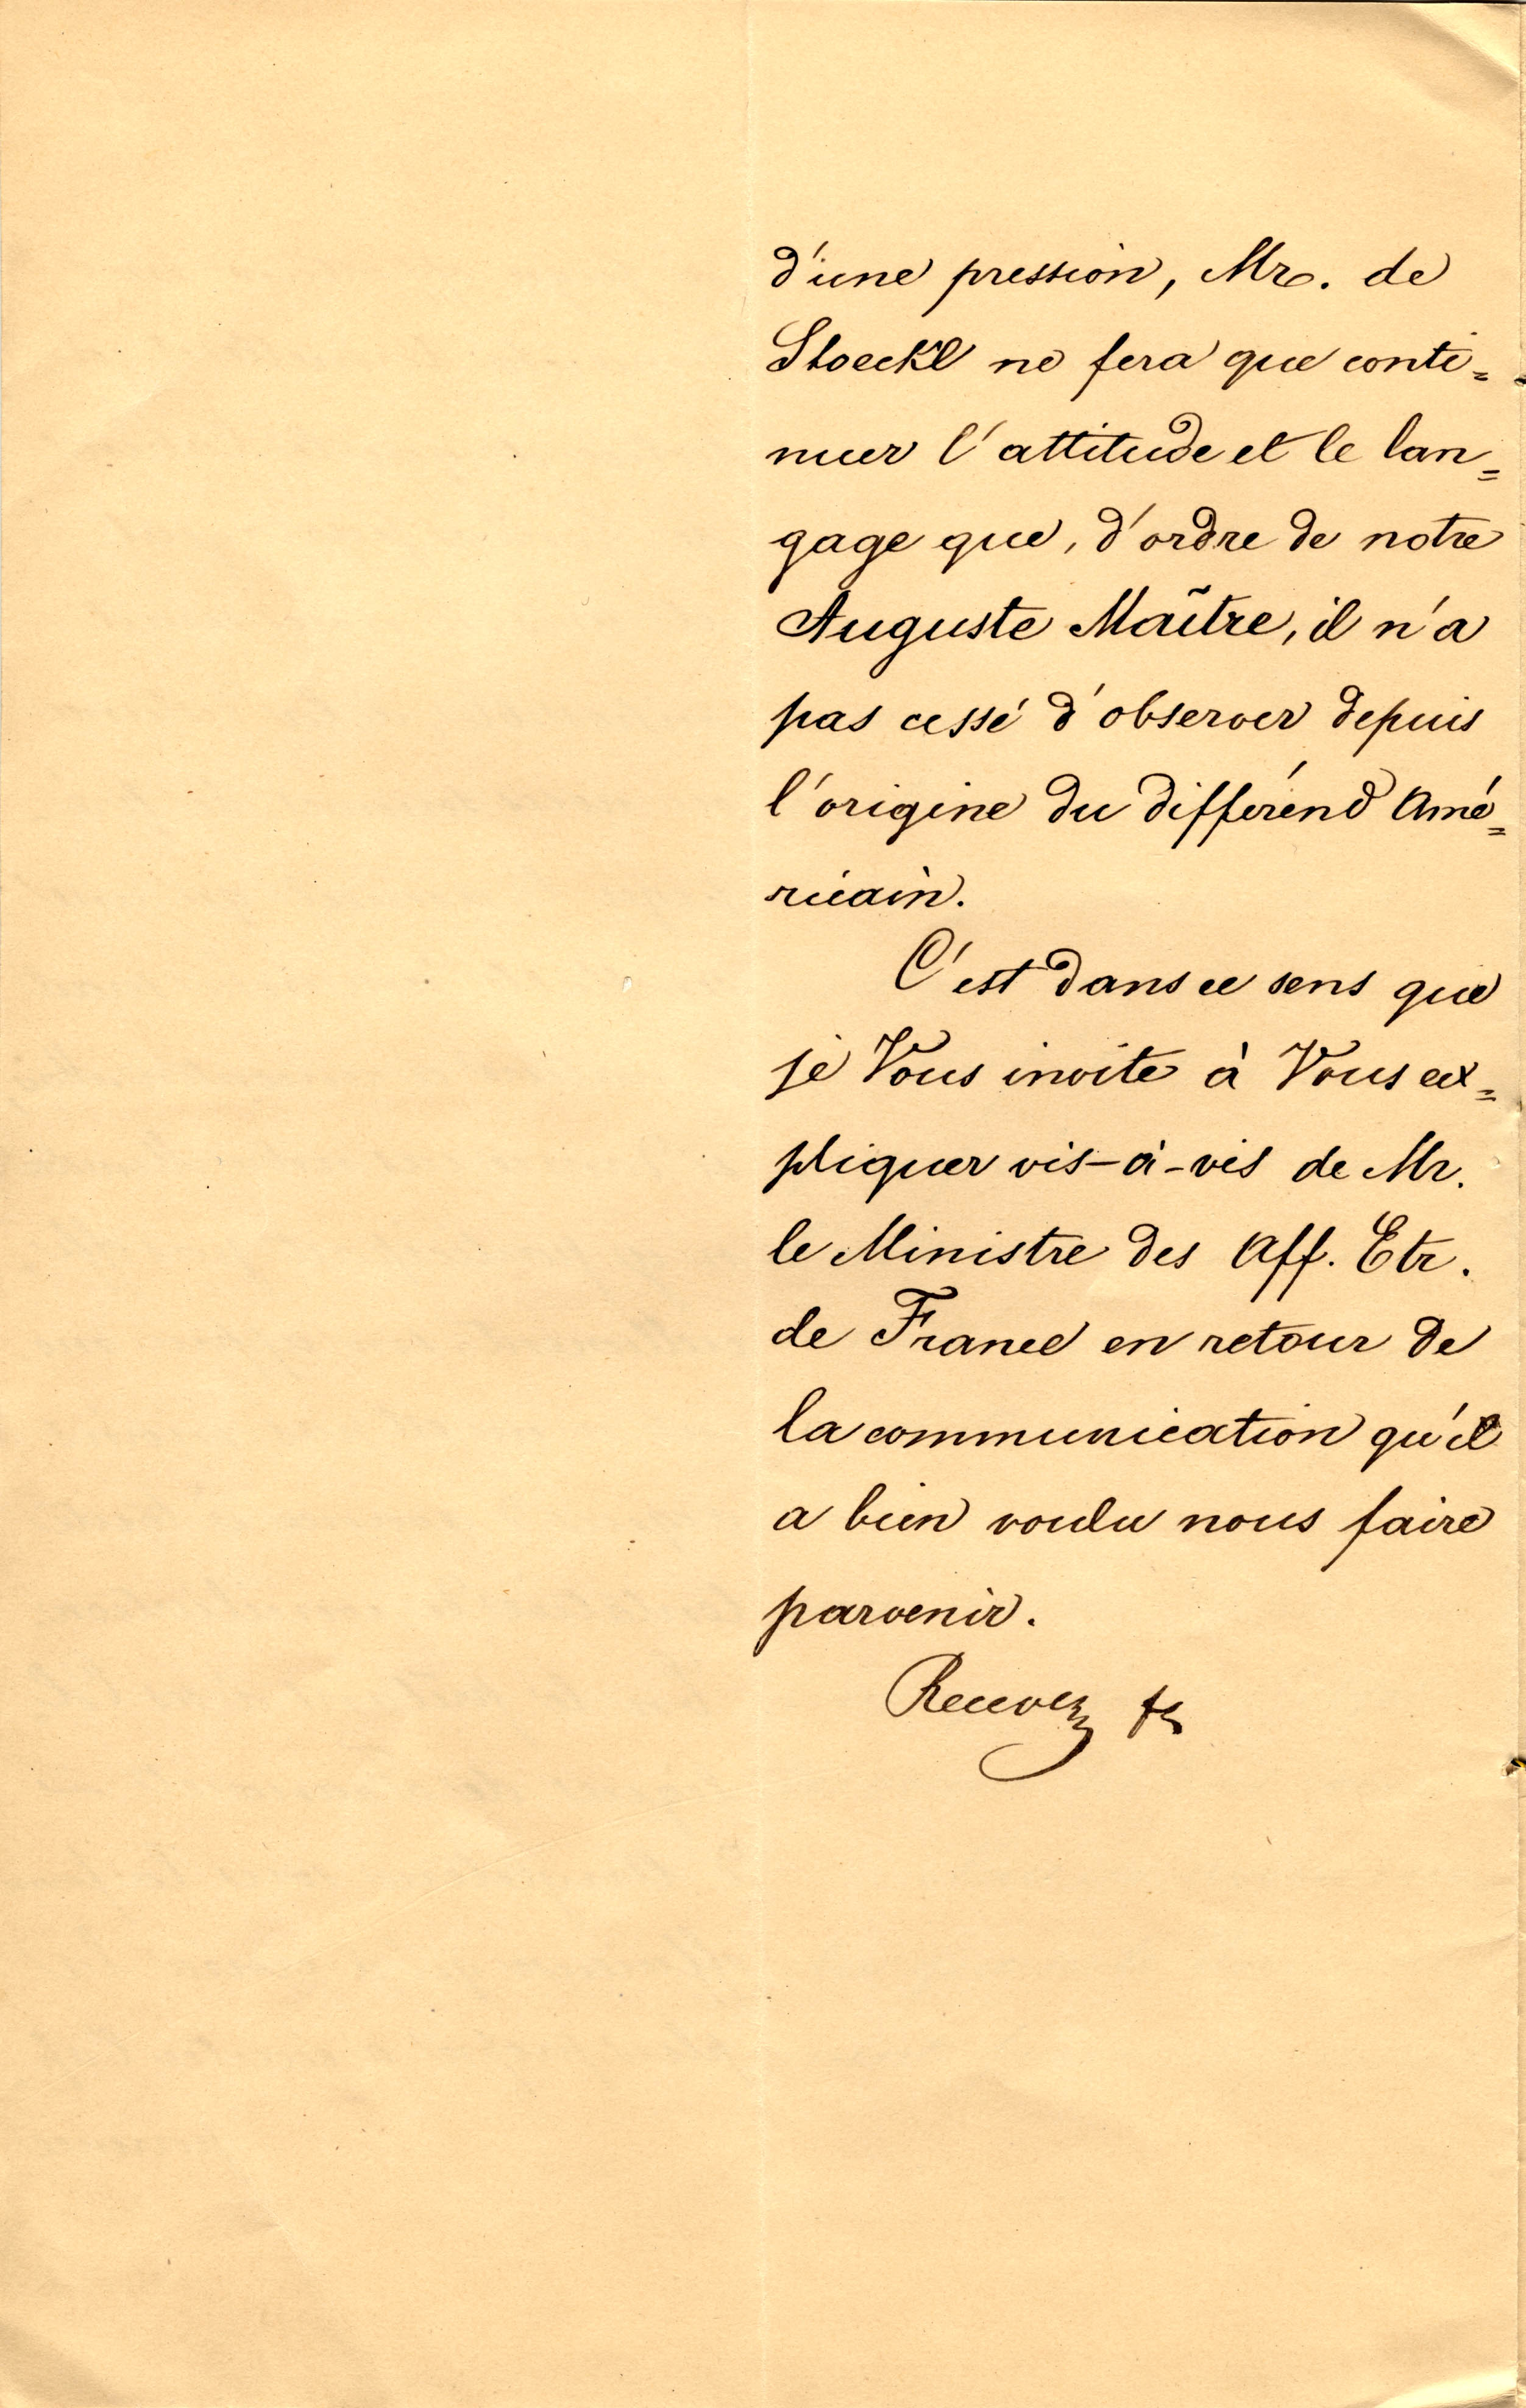 d'une pression, Mr. de
Stoeckl ne fera que conti=
nuer l'attitude et le lan=
gage que, d'ordre de notre
Auguste Maître, il n'a
pas cessé d'observer depuis
l'origine du différend Amé=
ricain.
C'est dans ce sens que
je Vous invite à Vous ex=
pliquer vis-à-vis de Mr.
le Ministre des Aff. Etr.
de France en retour de
la communication qu'il
a bien voulu nous faire
parvenir.
Recevez &